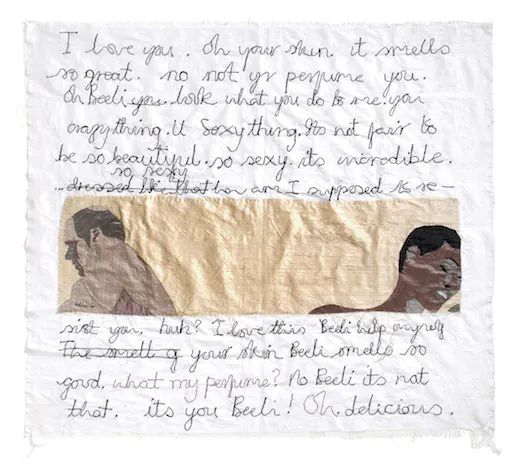 I love you. Oh your skin. it smells
so great. no not yr perfume you.
Oh Beeli you. look what you do to me. you
crazy thing. U Sexy thing. Its not fair to
be so beautiful. so sexy. its incredible.
so sexy
dressed like that how am I supposed to re-
sist you. huh? I love this Beeli help
The smell of your skin Beeli smells so
good. what my perfume? No Beeli its not
that. its you Beeli! Oh. delicious.